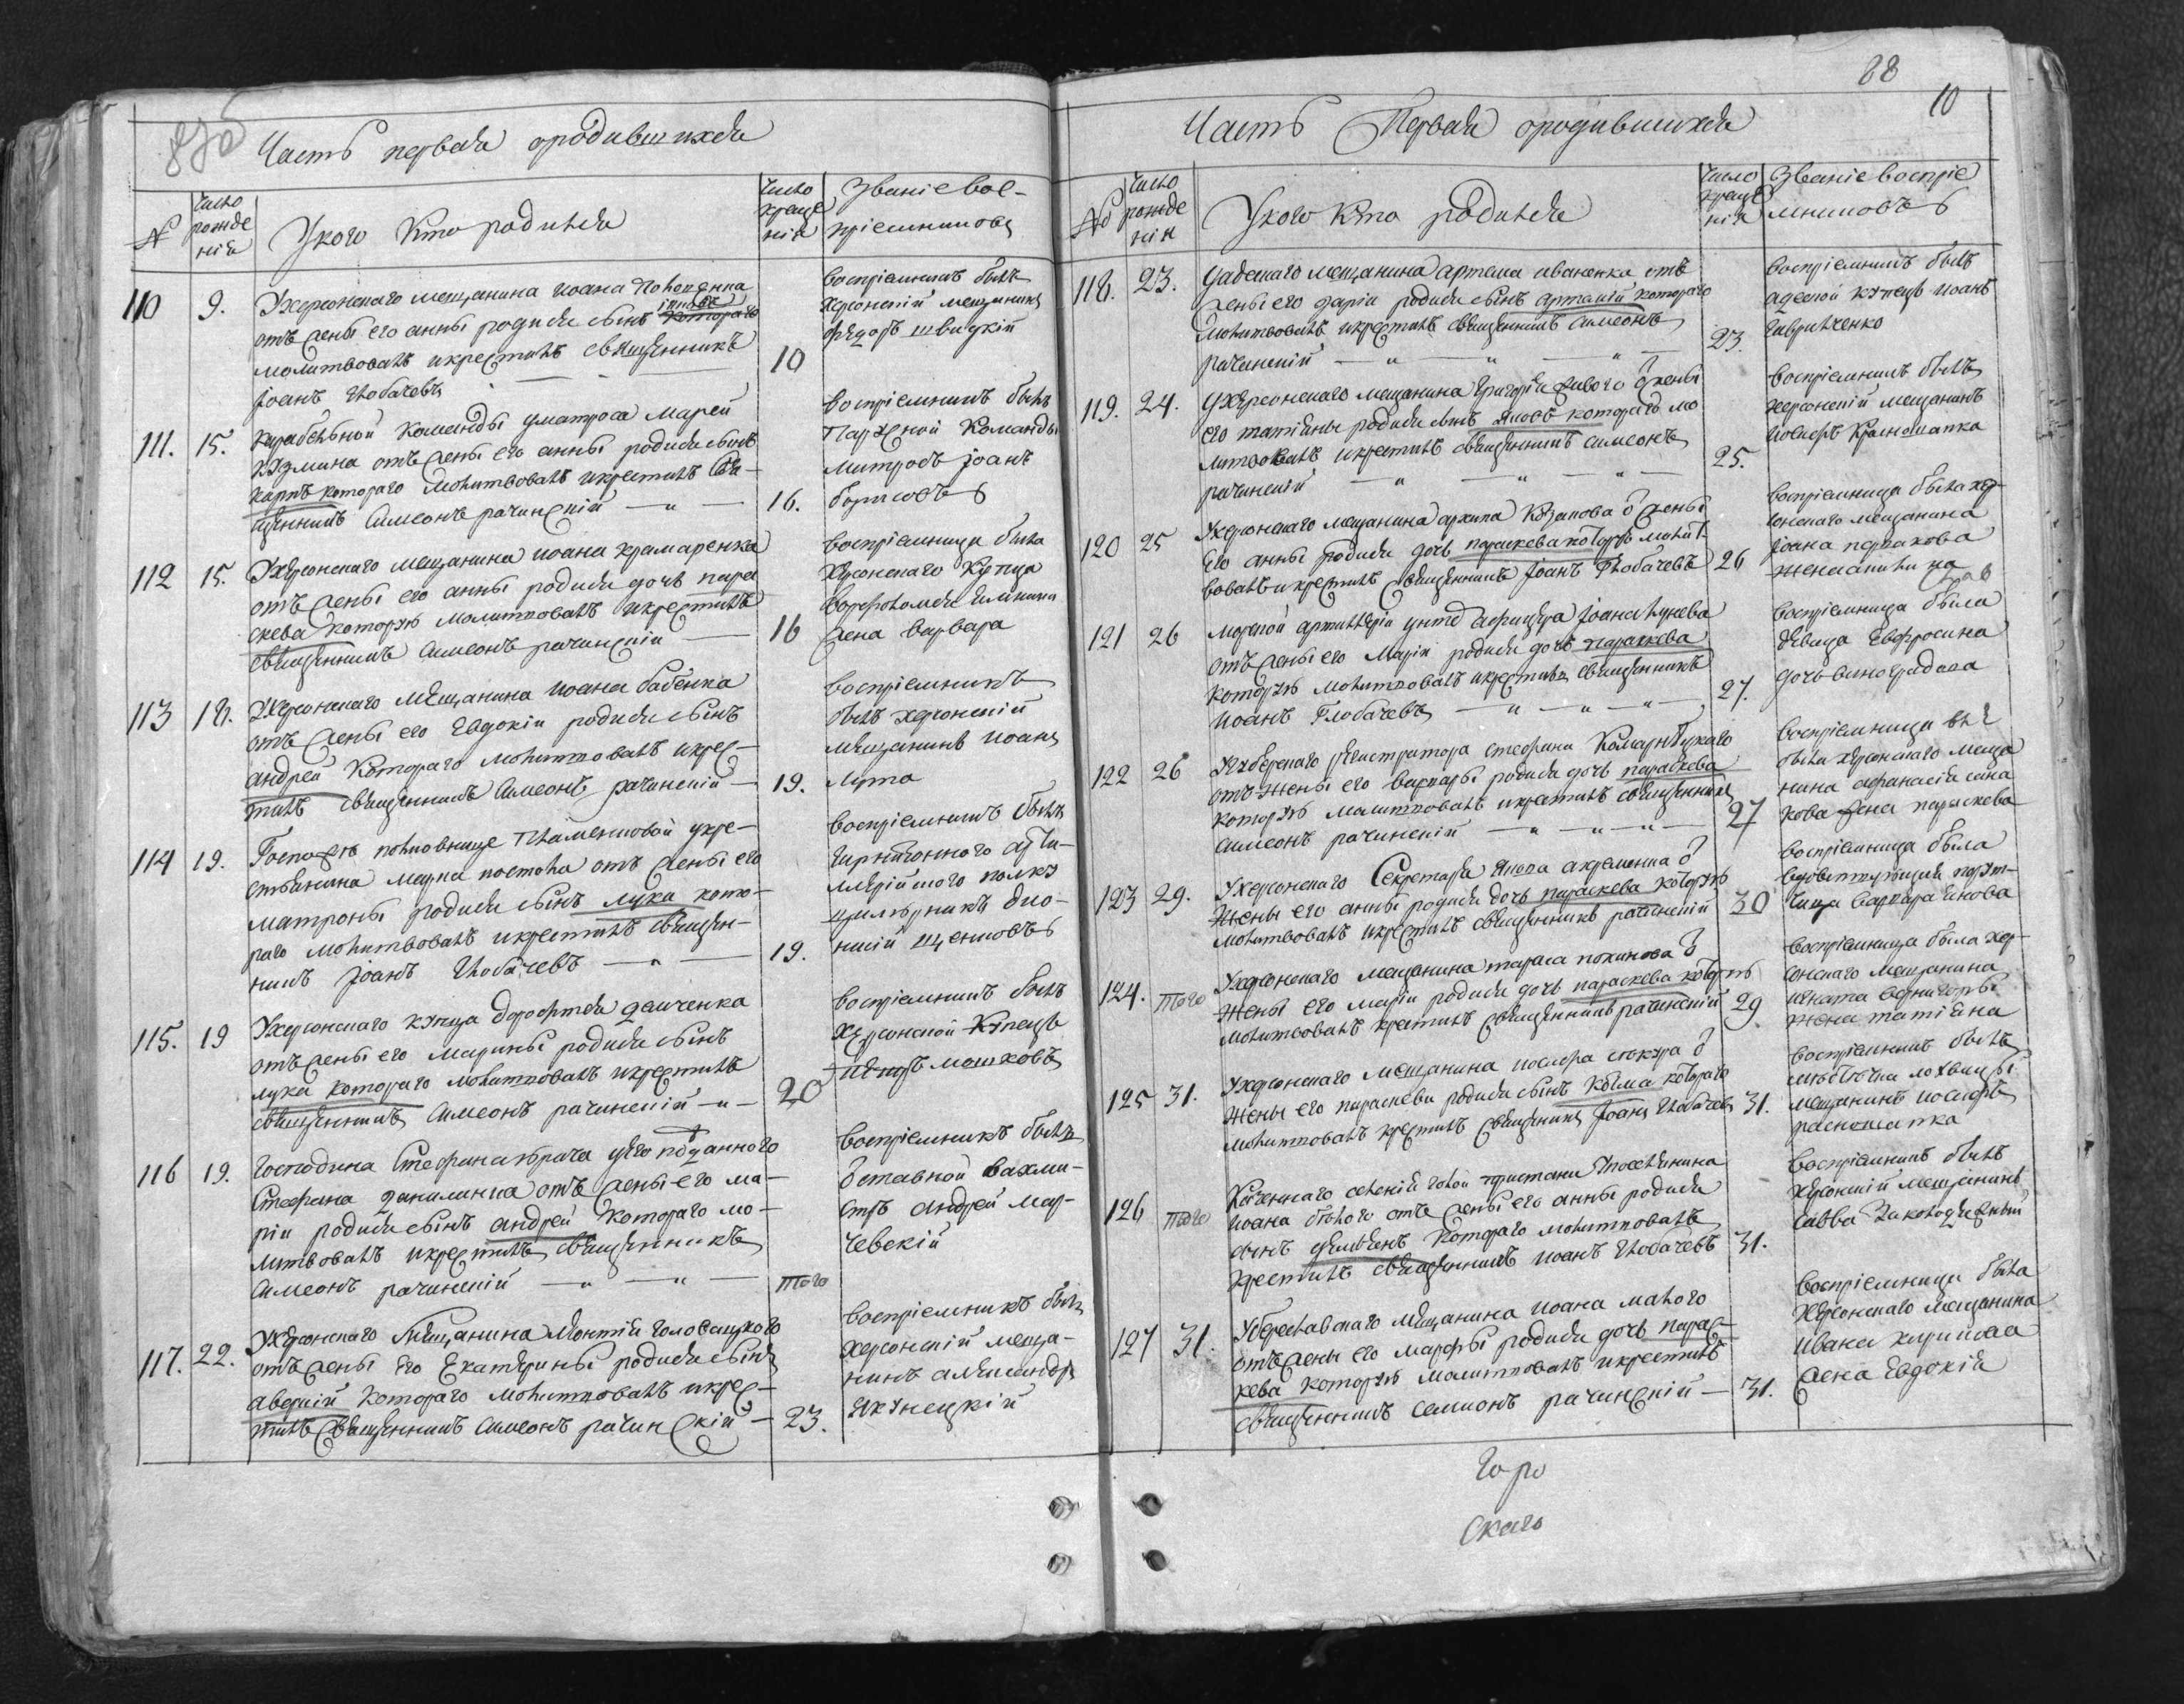 87об
Часть первая о родившихся
№
число рожде нія
У кого Кто родился
число креще нія
Званіе вос-
пріемниковъ
110
9.
У херсонскаго мещанина иоана
отъ жены его анны родился сынъ которого
молитвовалъ и крестилъ священникъ
іоанъ Глобачевъ
10
воспріемникъ былъ
херсонскій мещанинъ
федоръ швидкій
111.
15.
Карабельной Команды у матроса Марка
Кузмина отъ жены его анны родился сынъ
карпъ которого молитвовалъ и крестилъ свя-
щенникъ симеонъ рачинскій
16.
воспріемникъ былъ
Команды
матросъ іоанъ
борисовъ
112
15.
У херсонскаго мещанина иоана крамаренка
отъ жены его анны родися дочь пара
скева которую молитвовалъ и крестилъ
священникъ симеонъ рачинскій
16
воспріемница была
херсонскаго купца
варфоломея
жена варвара
113
18.
У херсонскаго мещанина иоана бабенка
отъ жены его евдокіи родися сынъ
андрей которого молитвовалъ и крес-
тилъ священникъ симеонъ рачинскій
19.
воспріемникъ
былъ херсонскій
мещанинъ иоанъ
лута
114
19.
Госпожѣ полковнице укре-
марка постола отъ жены его
матроны родися сынъ лука кото-
раго молитвовалъ и крестилъ священ-
никъ іоанъ Глобачевъ
19.
воспріемникъ былъ
гарнизонного арти-
лерійского полку
дио-
нисій щенковъ
115.
19
У херсонскаго купца дорофтея демченка
отъ жены его марины родися сынъ
лука которого молитвовалъ и крестилъ
священникъ симеонъ рачинскій
20
воспріемникъ былъ
херсонской купецъ
мошковъ
116
19.
Господина Стефана у его подданного
Стефана данилинка отъ жены его ма-
ріи родися сынъ андрей которого мо-
литвовалъ и крестилъ священникъ
симеонъ рачинскій
того
воспріемникъ былъ
отставной вахми-
стръ андрей мар-
чевскій
117.
22.
У херсонскаго мещанина леонтія
отъ жены его екатерины родися сынъ
аверкій которого молитвовалъ и крес-
тилъ священникъ симеонъ рачинскій
23.
воспріемникъ былъ
херсонскій меща-
нинъ александръ
якунецкій
88
10
Часть Первая о родившихся
№
число рожде нія
У кого Кто родился
число креще нія
Званіе воспріе
мниковъ
118.
23.
У адескаго мещанина артема иваненка отъ
жены его даріи родися сынъ артемій которого
молитвовалъ и крестилъ священникъ симеонъ
рачинскій
23.
воспріемникъ былъ
адеской купецъ иоанъ
гавриленко
119.
24.
У херсонскаго мещанина григорія от жены
его татіяны родися сынъ яковъ которого мо
литвовалъ и крестилъ священникъ симеонъ
рачинскій
25.
воспріемникъ былъ
херсонскій мещанинъ
иосифъ красношапка
120
25
У херсонскаго мещанина архипа козакова от жены
его анны родися дочь параскева которую молит-
вовалъ и крестилъ священникъ іоанъ Глобачевъ
26
воспріемница была хер-
сонскаго мещанина
іоана
жена
121
26
морской артиллеріи унтеръ афицера іоана
отъ жены его маріи родися дочь параскева
которую молитвовалъ и крестилъ священникъ
иоанъ Глобачевъ
27.
воспріемница была
девица евфросина
дочь виноградова
122
26
регистратора стефана комарницкаго
отъ жены его варвары родися дочь параскева
которую молитвовалъ и крестилъ священникъ
симеонъ рачинскій
27
воспріемница
была херсонскаго меща
нина афанасія сина
кова жена параскева
123
29.
У херсонскаго Секретаря якова от
жены его анны родися дочь параскева которую
молитвовалъ и крестилъ священникъ рачинскій
30
воспріемница была
вдовствующая
варвара
124.
того
У херсонскаго мещанина тараса от
жены его маріи родися дочь параскева которую
молитвовалъ крестилъ священникъ рачинскій
29
воспріемница была хер-
сонскаго мещанина
игната вернигоры
жена татіана
125
31.
У херсонскаго мещанина иосифа от
жены его параскевы родися сынъ косма которого
молитвовалъ крестилъ священникъ іоанъ Глобачевъ
31.
воспріемникъ былъ
местечка лохвицы
мещанинъ иосифъ
расношапка
126
того
Казенного селенія голой пристани у поселянина
иоана белого отъ жены его анны родися
сынъ которого молитвовалъ
крестилъ священникъ иоанъ Глобачевъ
31.
воспріемникъ былъ
херсонскій мещанинъ
савва
127
31.
У бериславскаго мещанина иоана малого
отъ жены его марфы родися дочь парас-
кева которую молитвовалъ и крестилъ
священникъ семионъ рачинскій
31.
воспріемница была
херсонскаго мещанина
ивана
жена евдокія
Горо
Скаго